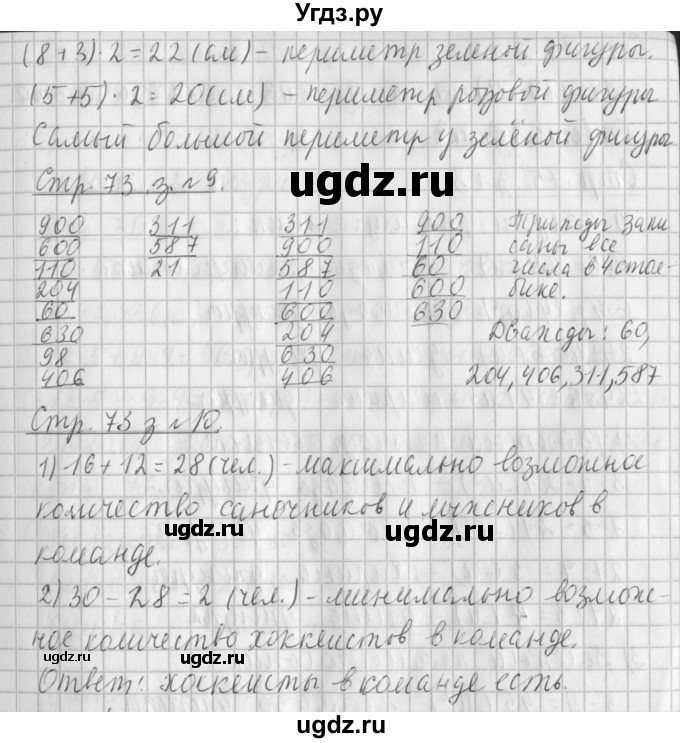 Угдз.ру
(8+3)·2=22(см) – периметр зеленой фигуры.
(5+5)·2=20(см) – периметр розовой фигуры
Самый большой периметр у зелёной фигуры
Стр. 73 з. №9.
ugdz.ru
900 311 311 900 Трижды запи
600 587 900 110 саны все
110 21 587 60 числа в 4 стол-
204 110 600 бике.
60 600 630
630 204 Дважды: 60,
98 630
406 406 204, 406, 311, 587
Стр. 73 з №10.
1) 16+12=28(чел.) – максимально возможное
количество саночников и лыжников в
ugdz.ru ugdz.ru
команде.
2) 30-28=2 (чел.) – минимально возмож-
ное количество хоккеистов в команде.
ugdz.ru ugdz.ru
Ответ: хоккеисты в команде есть.
ugdz.ru